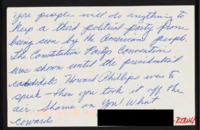 you people will do anything to
keep a third political party from
being seen by the American people
The Constitution Party Convention
was shown until the presidential
candidate Howard Phillips was to
speak - then you took it off the
air. Shame on You! What
coward